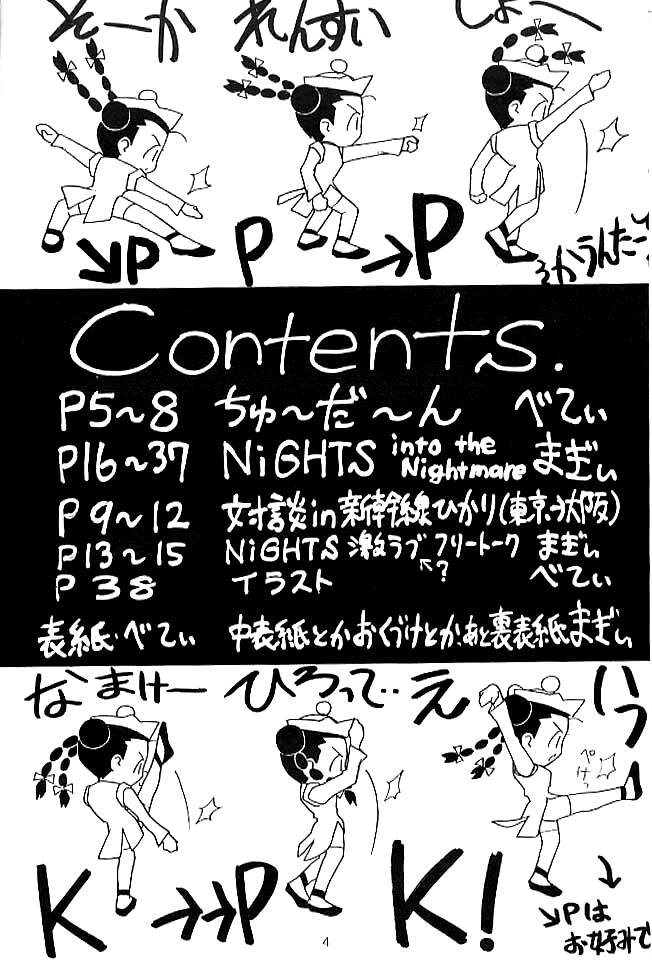 そーか れんすい しょ〜
↘P P →P
そかうんだー
Contents.
P5〜8 ちゅ〜だ〜ん べてぃ
P16〜37 NiGHTS into the Nightmare まぎぃ
P9〜12 対談in新幹線ひかり(東京→大阪)
P13〜15 NiGHTS 激ラブ フリートーク まぎぃ
←?
P38 イラスト べてぃ
表紙・べてぃ 中表紙とかおくづけとか、あと裏表紙まぎぃ
なまけー ひろって‥ えいっ
ぺけっ
K →→P K!
↓
↘Pは
お好みで
4